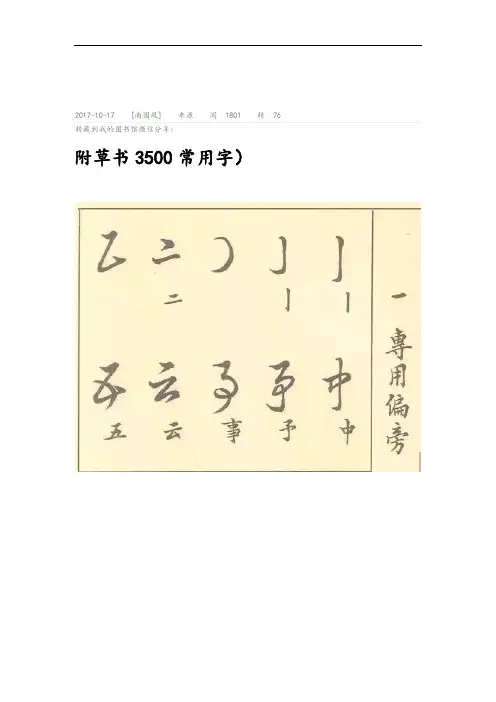 2017-10-17 [南国风] 来源 阅 1801 转 76
转藏到我的图书馆微信分享：
附草书3500常用字）
一 專用偏旁
丨 中 中
丨 予 予
事 事
二 二 云 云
五 五